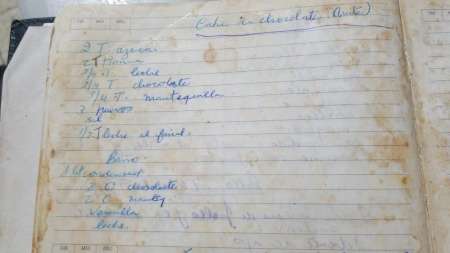 Cake de chocolate (Anita)
2 T. azucar
2 T Harina
1/2 T. leche
3/4 T. chocolate
1/4 T. mantequilla
2 huevos
sal
1/2 T leche al final.
Baño.
1 lat condensad
2 C. chocolate
2 C. manteq
vainilla
leche.